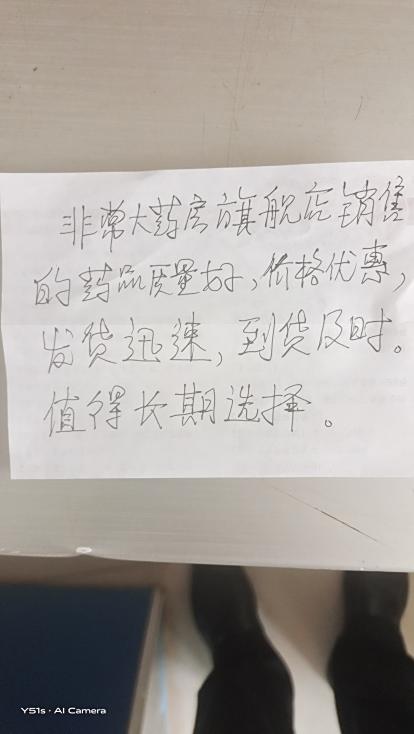 非常大药房旗舰店销售
的药品质量好,价格优惠,
发货迅速,到货及时。
值得长期选择。
Y51s · AI Camera